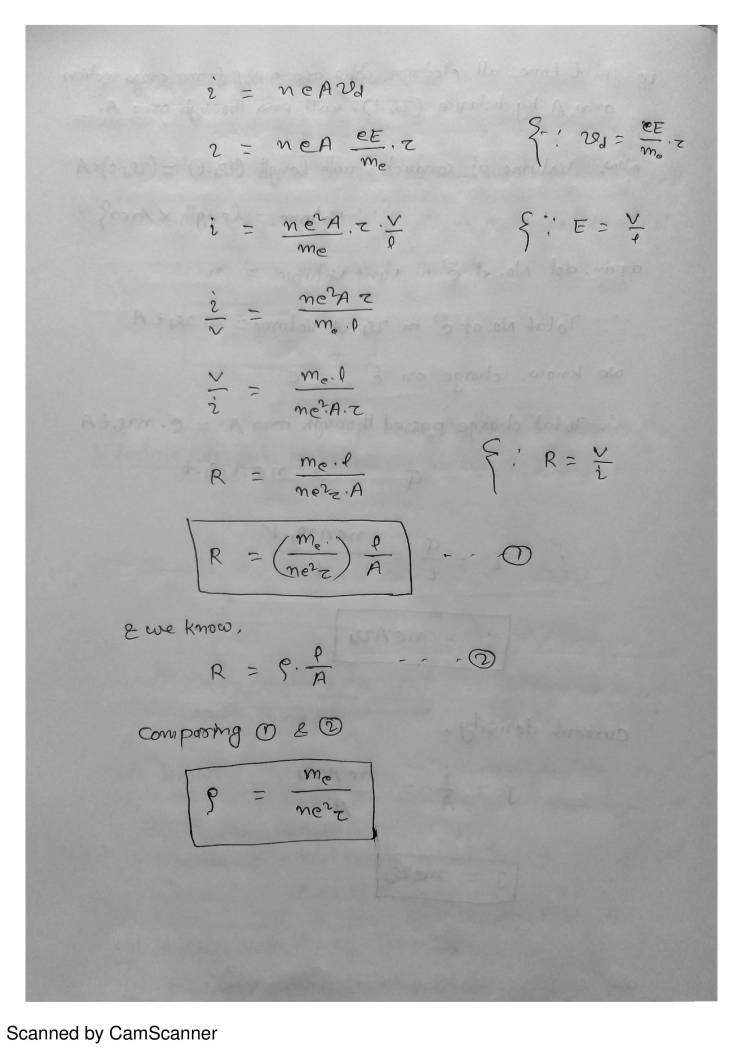 i = neAvd
i = neA eE/me . τ { ∵ vd = eE/me . τ
i = ne²A/me . τ . V/l { ∵ E = V/l
i/V = ne²Aτ/me.l
V/i = me.l/ne².A.τ
R = me.l/ne²τ.A { ∵ R = V/i
R = (me./ne²τ) l/A -- - ①
& we know,
R = ρ. l/A - - - ②
comparing ① & ②
ρ = me/ne²τ
Scanned by CamScanner